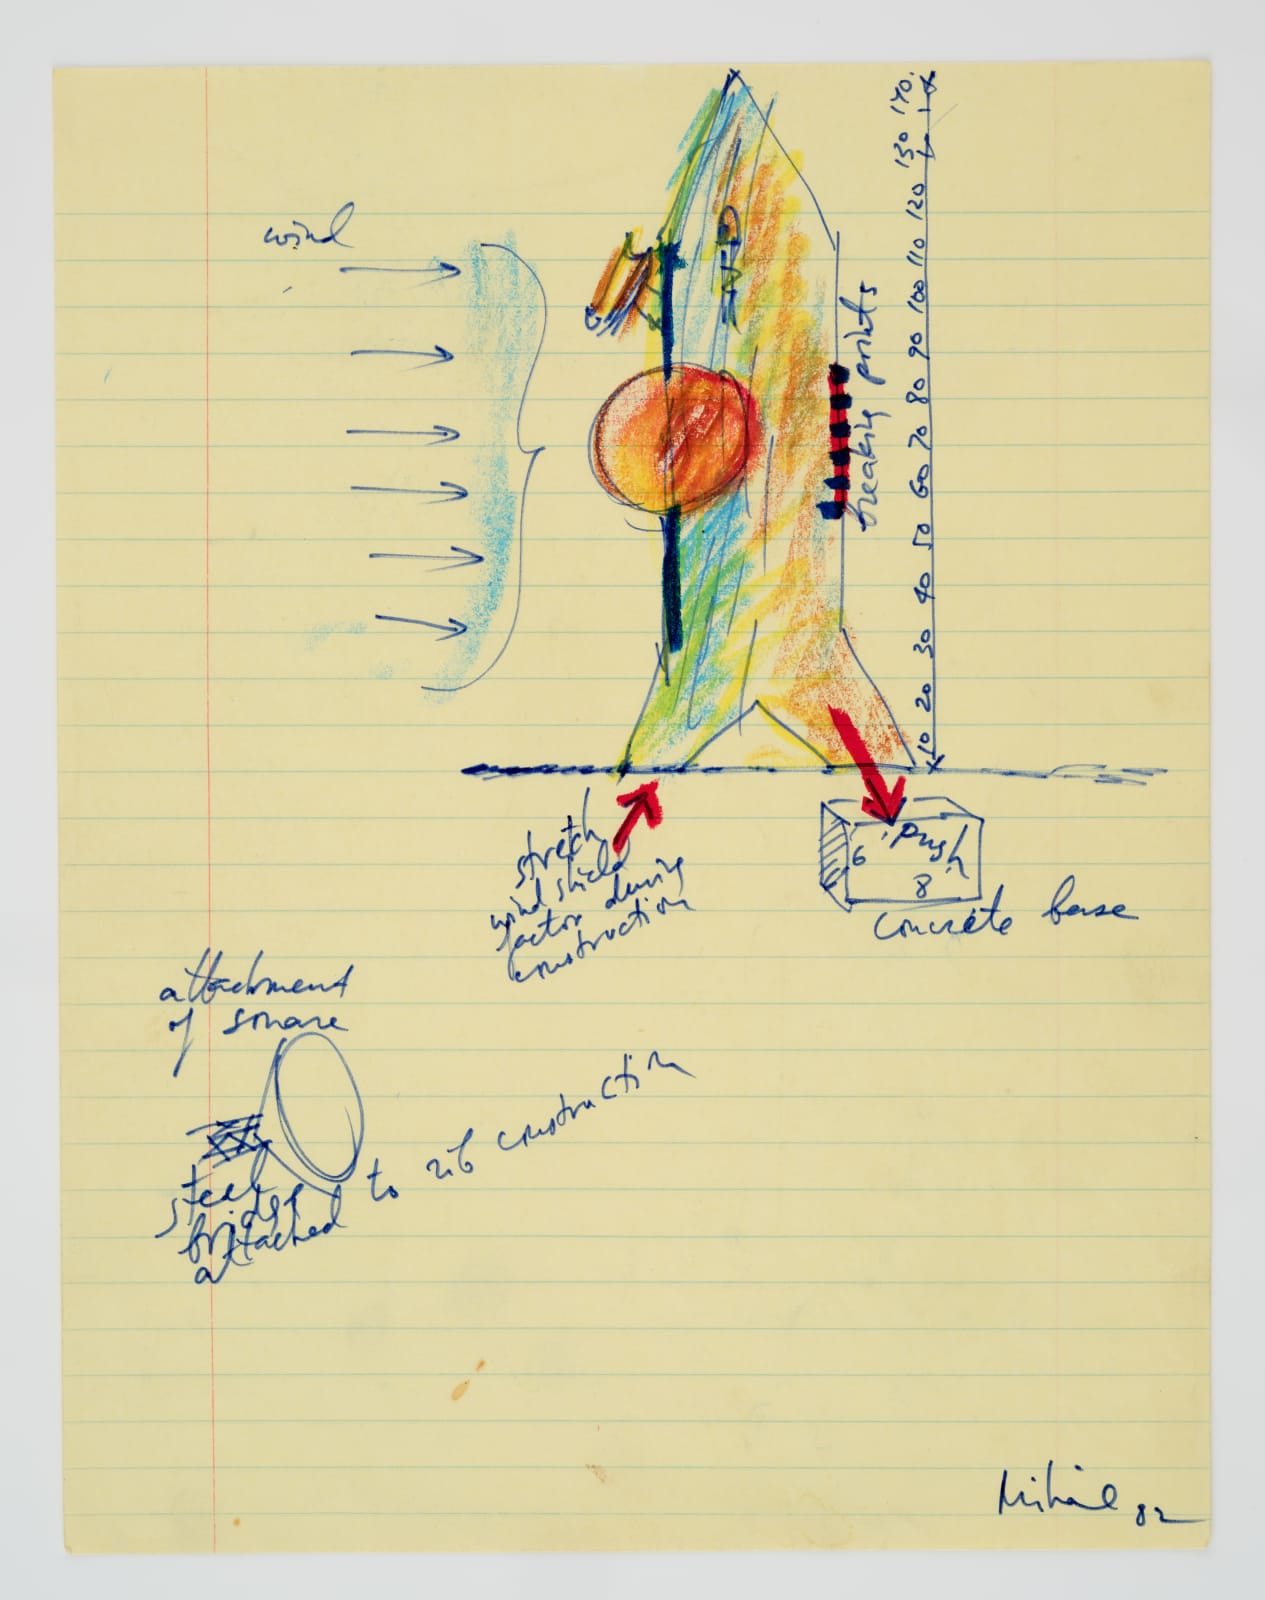 wind
170.
130
120
110
100
90
80
70
60
50
40
30
20
10
breaking points
stretch
wind shield
factor during
construction
push
6
8
concrete base
attachment
of square
steel
bridge
attached to rib construction
82